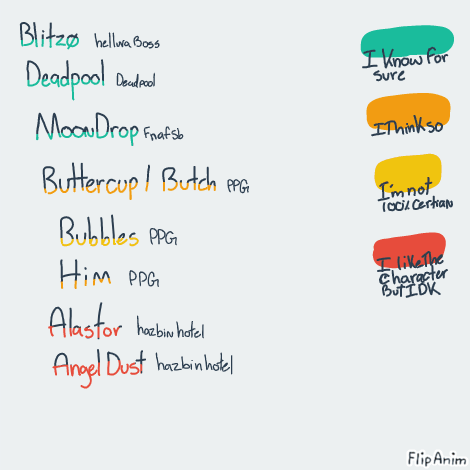 Blitzø hellvaBoss
Deadpool Deadpool
MoonDrop Fnafsb
Buttercup / Butch PPG
Bubbles PPG
Him PPG
Alastor hazbin hotel
Angel Dust hazbin hotel
I Know for
sure
I Think so
I'm not
100% Certian
I like The
Character
But IDK
FlipAnim